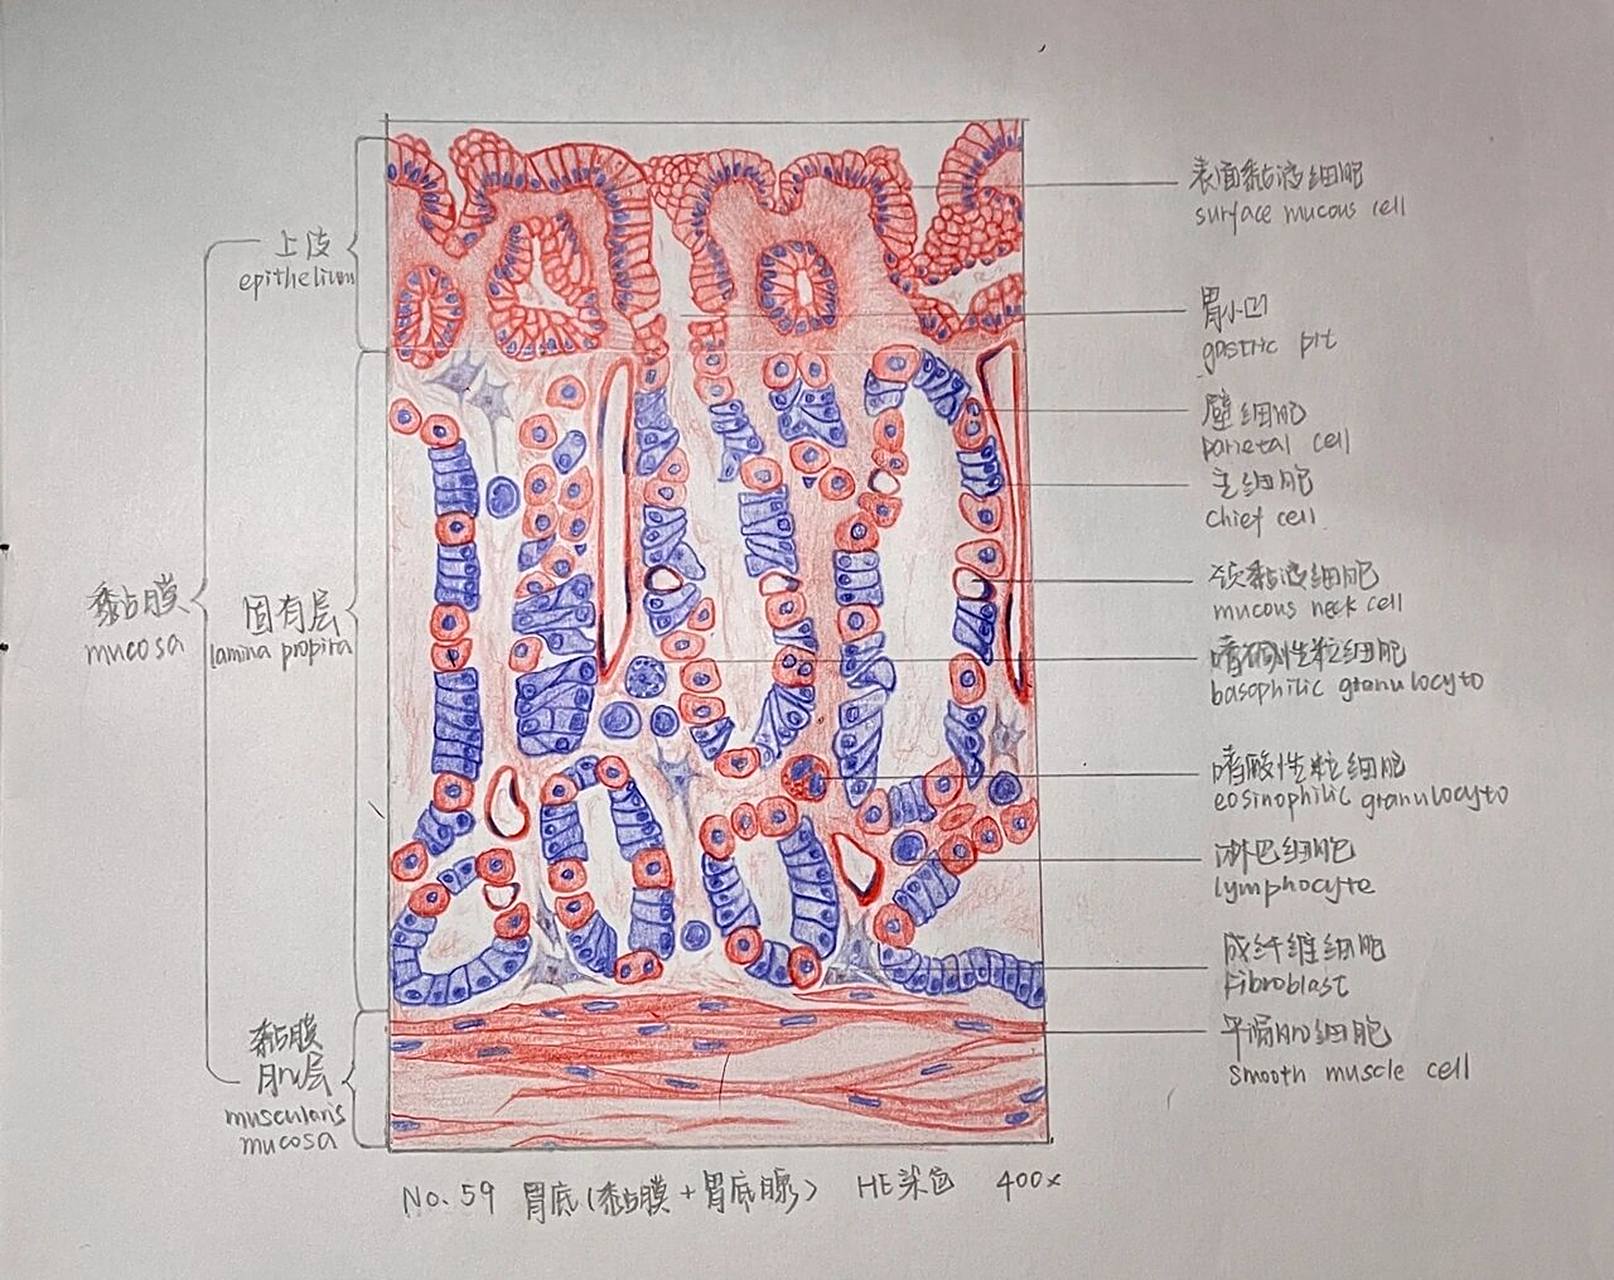 表面黏液细胞
surface mucous cell
上皮
epithelium
胃小凹
gastric pit
壁细胞
parietal cell
主细胞
chief cell
颈黏液细胞
mucous neck cell
黏膜
mucosa
固有层
lamina propira
嗜碱性粒细胞
basophilic granulocyto
嗜酸性粒细胞
eosinophilic granulocyto
淋巴细胞
lymphocyte
成纤维细胞
Fibroblast
黏膜
肌层
muscularis
mucosa
平滑肌细胞
smooth muscle cell
No.59 胃底(黏膜+胃底腺) HE染色 400×